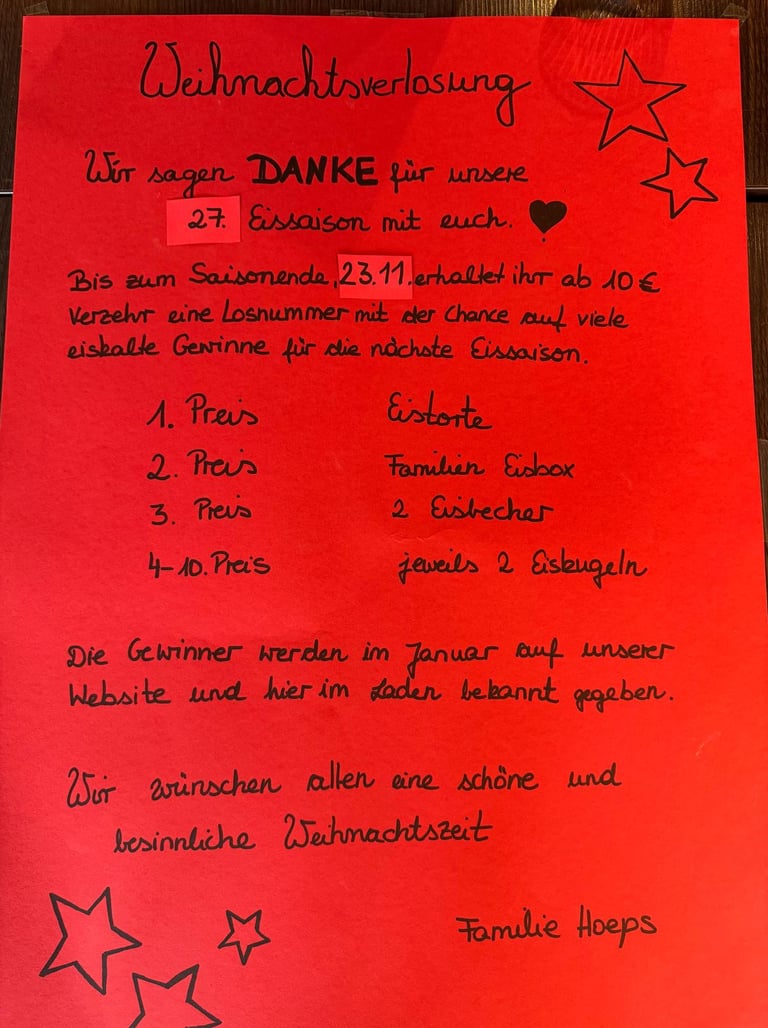 Weihnachtsverlosung
Wir sagen DANKE für unsere
27. Eissaison mit euch.
Bis zum Saisonende, 23.11. erhaltet ihr ab 10 €
Verzehr eine Losnummer mit der Chance auf viele
eiskalte Gewinne für die nächste Eissaison.
1. Preis Eistorte
2. Preis Familien Eisbox
3. Preis 2 Eisbecher
4-10. Preis jeweils 2 Eiskugeln
Die Gewinner werden im Januar auf unserer
Website und hier im Laden bekannt gegeben.
Wir wünschen allen eine schöne und
besinnliche Weihnachtszeit
Familie Hoeps